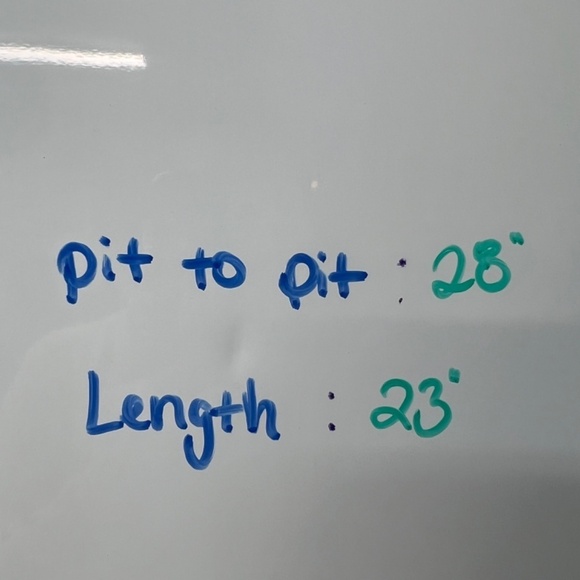 pit to pit : 28"
Length : 23"